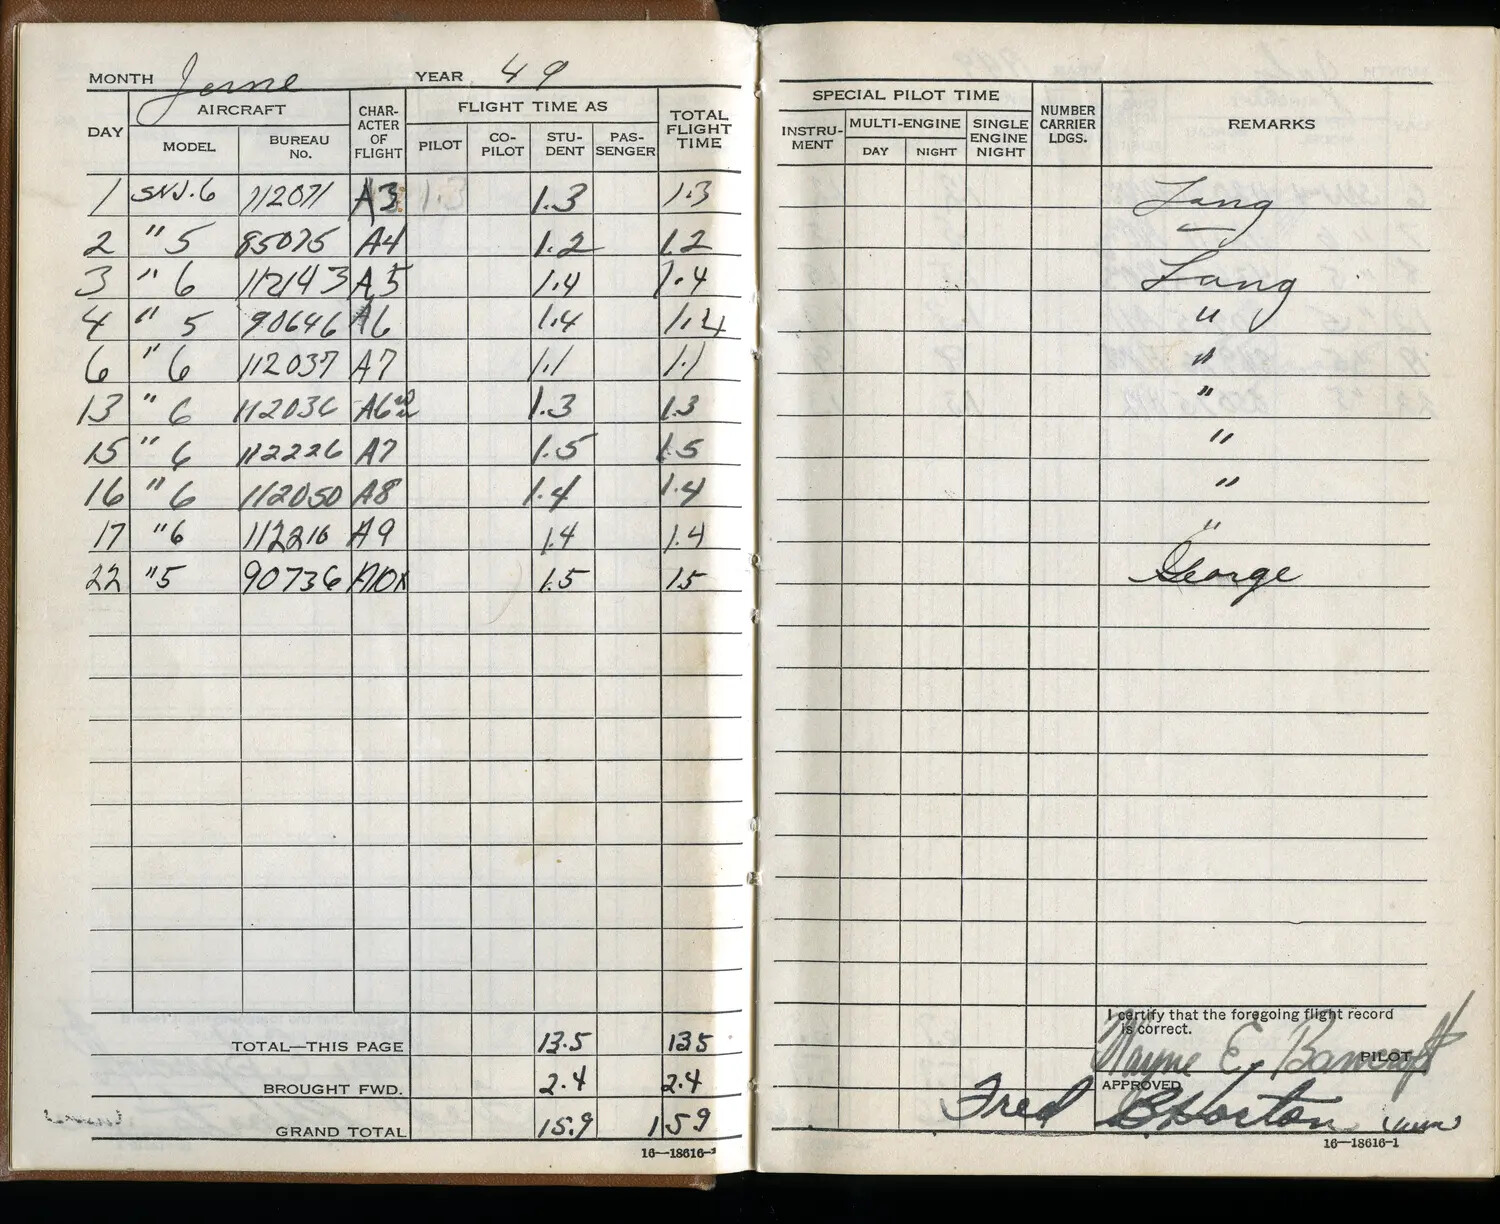 MONTH June YEAR 49
DAY AIRCRAFT CHAR-ACTER OF FLIGHT FLIGHT TIME AS TOTAL FLIGHT TIME
MODEL BUREAU No. PILOT CO-PILOT STU-DENT PAS-SENGER
1 SNJ.6 112071 A3 1.3 1.3 1.3
2 " 5 85075 A4 1.2 1.2
3 " 6 112143 A5 1.4 1.4
4 " 5 90646 A6 1.4 1.4
6 " 6 112037 A7 1.1 1.1
13 " 6 112036 A6 1.3 1.3
15 " 6 112226 A7 1.5 1.5
16 " 6 112050 A8 1.4 1.4
17 " 6 112216 A9 1.4 1.4
22 " 5 90736 A10X 1.5 1.5
TOTAL—THIS PAGE 13.5 13.5
BROUGHT FWD. 2.4 2.4
GRAND TOTAL 15.9 15.9
16—18616-1
SPECIAL PILOT TIME NUMBER CARRIER LDGS. REMARKS
INSTRU-MENT MULTI-ENGINE SINGLE ENGINE NIGHT
DAY NIGHT
Lang
—
Lang
"
"
"
"
"
"
George
I certify that the foregoing flight record
is correct.
Wayne E. Bancroft PILOT
APPROVED
Fred B Horton
16—18616-1